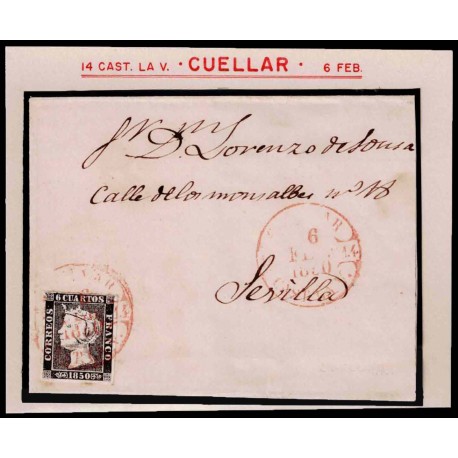 14 CAST. LA V. · CUELLAR · 6 FEB.
D. Lorenzo de Sousa
Calle de los monsalbes nº 18
6
FEB
1850
Sevilla
6 CUARTOS
CORREOS
FRANCO
1850